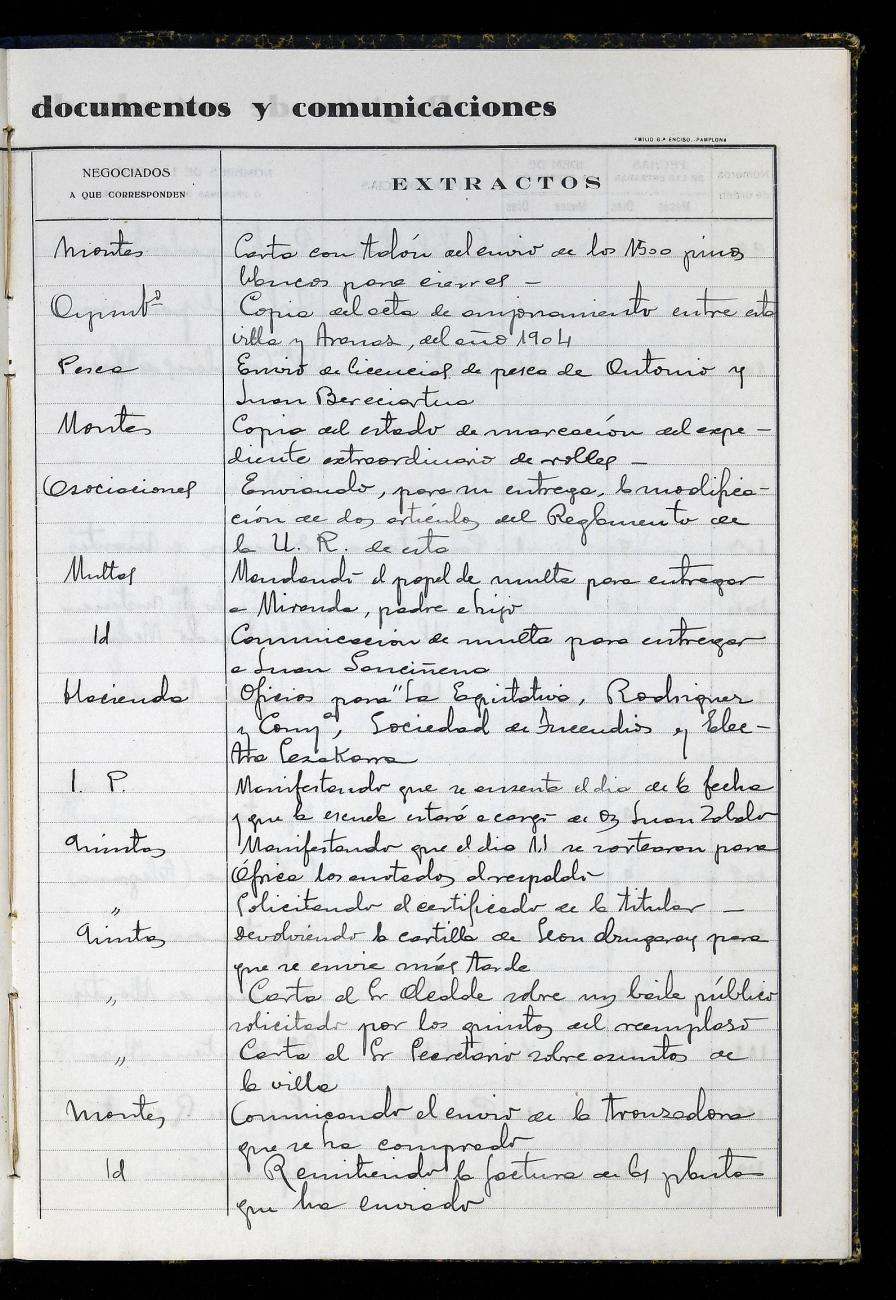 documentos y comunicaciones
EMILIO G.ª ENCISO.-PAMPLONA
NEGOCIADOS
A QUE CORRESPONDEN
EXTRACTOS
Montes Carta con talón del envio de los 1500 pinos
blancos para cierres -
Ayuntº Copia del acta de amojonamiento entre esta
villa y Aranaz, del año 1904
Pesca Envio de licencias de pesca de Antonio y
Juan Bereciartua
Montes Copia del estado de marcación del expe-
diente extraordinario de robles -
Asociaciones Enviando, para su entrega, la modifica-
ción de dos artículos del Reglamento de
la U. R. de esta
Multas Mandando el papel de multa para entregar
a Miranda, padre e hijo
Id Comunicacion de multa para entregar
a Juan Sanciñena
Hacienda Oficios para "La Equitativa, Rodriguez
y Compª, Sociedad de Incendios y Elec-
tra Lesakarra
I. P. Manifestando que se ausenta el dia de la fecha
y que la escuela estará a cargo de Juan Zabalo
Quintas Manifestando que el dia 11 se sortearan para
África los anotados al respaldo
" Solicitando el certificado de la titular -
Quintas Devolviendo la cartilla de Leon para
que se envie más tarde
" Carta al Sr Alcalde sobre un baile público
solicitado por los quintos del reemplaso
" Carta al Sr Secretario sobre asuntos de
la villa
Montes Comunicando el envio de la tronzadora
que se ha comprado
Id Remitiendo la factura de las plantas
que ha enviado